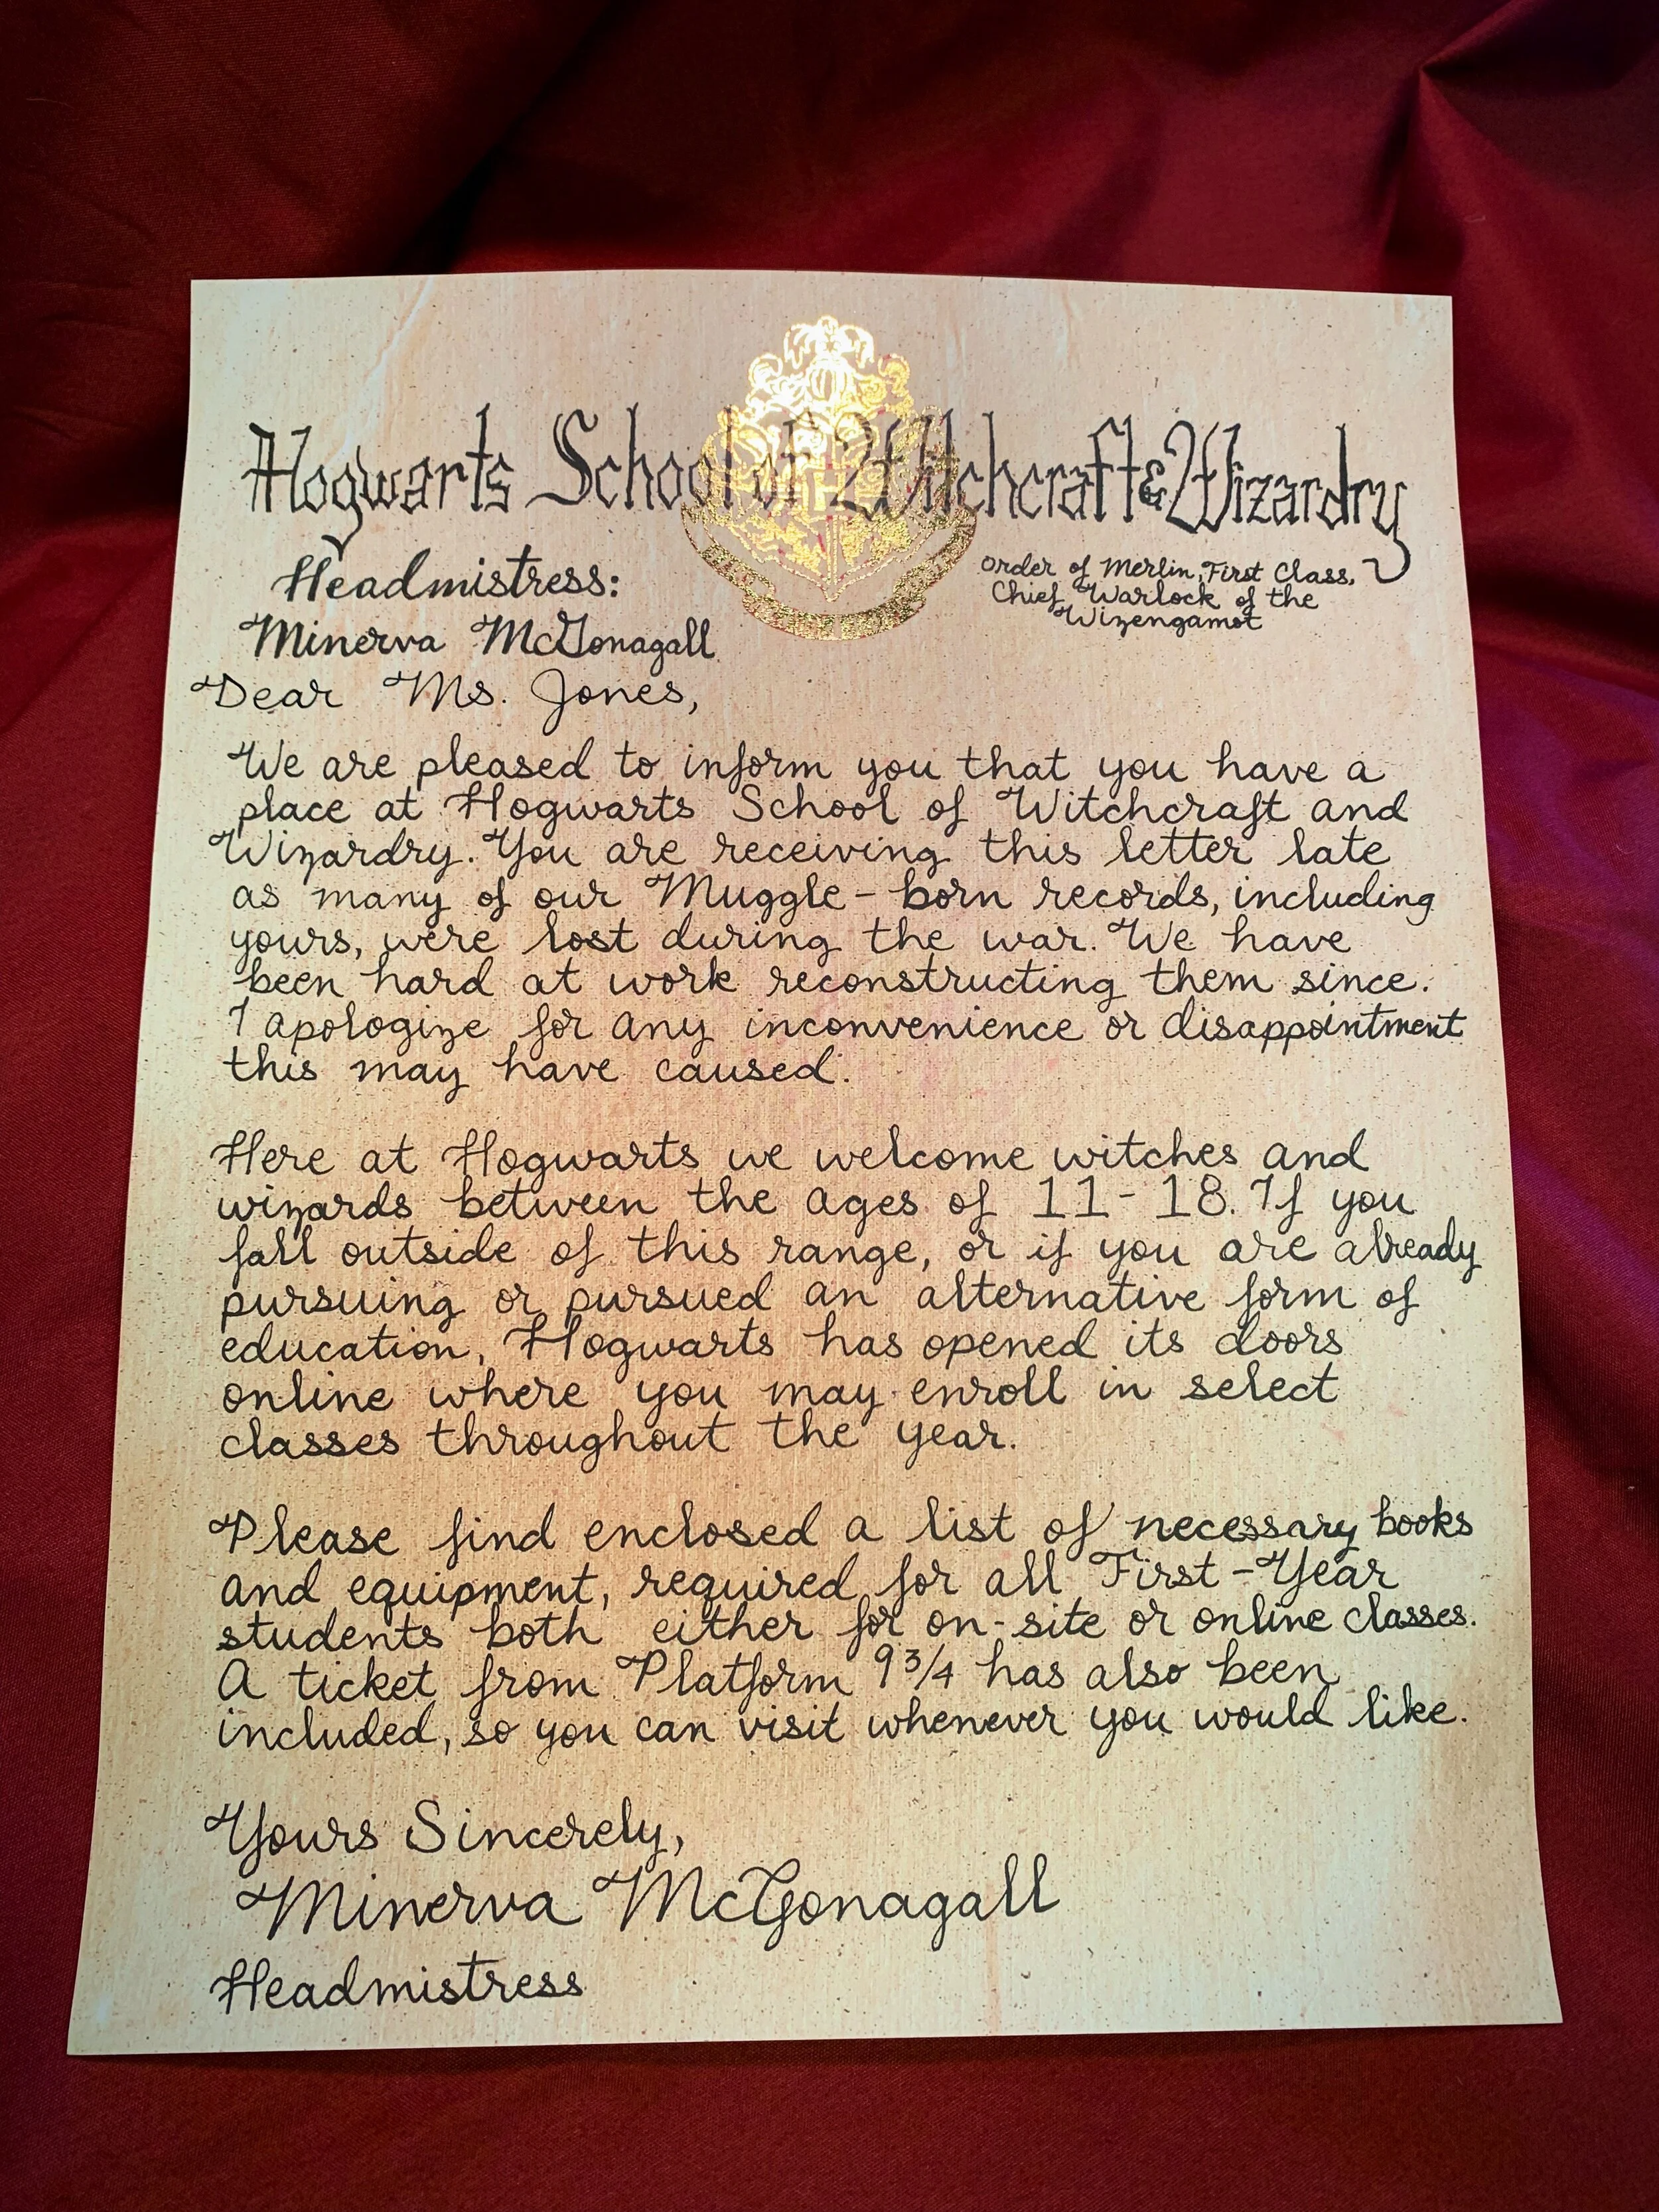 Hogwarts School of Witchcraft & Wizardry
Headmistress:
Minerva McGonagall
Order of Merlin, First Class,
Chief Warlock of the
Wizengamot
Dear Ms. Jones,
We are pleased to inform you that you have a
place at Hogwarts School of Witchcraft and
Wizardry. You are receiving this letter late
as many of our Muggle-born records, including
yours, were lost during the war. We have
been hard at work reconstructing them since.
I apologize for any inconvenience or disappointment
this may have caused.
Here at Hogwarts we welcome witches and
wizards between the ages of 11-18. If you
fall outside of this range, or if you are already
pursuing or pursued an alternative form of
education, Hogwarts has opened its doors
online where you may enroll in select
classes throughout the year.
Please find enclosed a list of necessary books
and equipment, required for all First-Year
students both either for on-site or online classes.
A ticket from Platform 9 3/4 has also been
included, so you can visit whenever you would like.
Yours Sincerely,
Minerva McGonagall
Headmistress